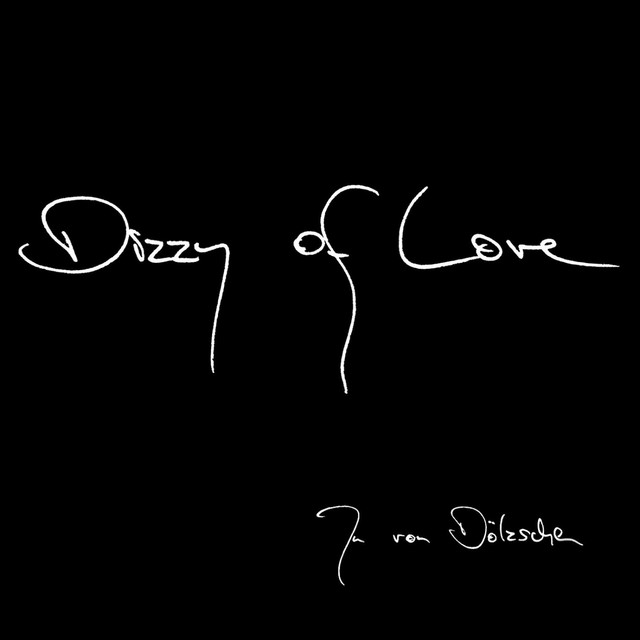 Dizzy of Love
von Dölzschen